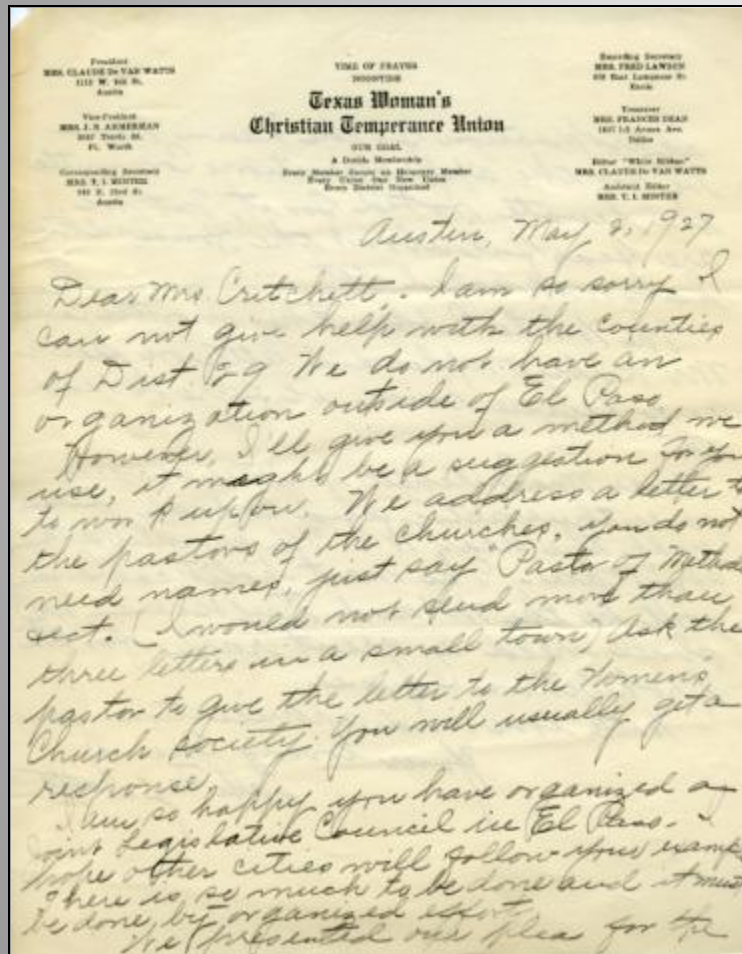 President
MRS. CLAUDE De VAN WATTS
Austin
Vice-President
Ft. Worth
Corresponding Secretary
MRS. T. I. MINTER
Austin
TIME OF PRAYER
NOONTIDE
Texas Woman's
Christian Temperance Union
OUR GOAL
A Double Membership
Every Member Secure an Honorary Member
Every Union One New Union
Every District Organized
Recording Secretary
MRS. FRED LAWSON
Ennis
Treasurer
MRS. FRANCES DEAN
Dallas
Editor "White Ribbon"
MRS. CLAUDE De VAN WATTS
Assistant Editor
MRS. T. I. MINTER
Austin, May 2, 1927
Dear Mrs Critchett, - I am so sorry I
can not give help with the counties
of Dist. 29 We do not have an
organization outside of El Paso
However, I'll give you a method we
use, it might be a suggestion for you
to work upon. We address a letter to
the pastors of the churches, you do not
need names, just say "Pastor of
sect. (I would not send more than
three letters in a small town) Ask the
pastor to give the letter to the Women's
Church society. You will usually get a
response.
I am so happy you have organized a
Joint Legislative Council in El Paso. - I
hope other cities will follow your
There is so much to be done and it must
be done by organized effort.
We presented our plea for the